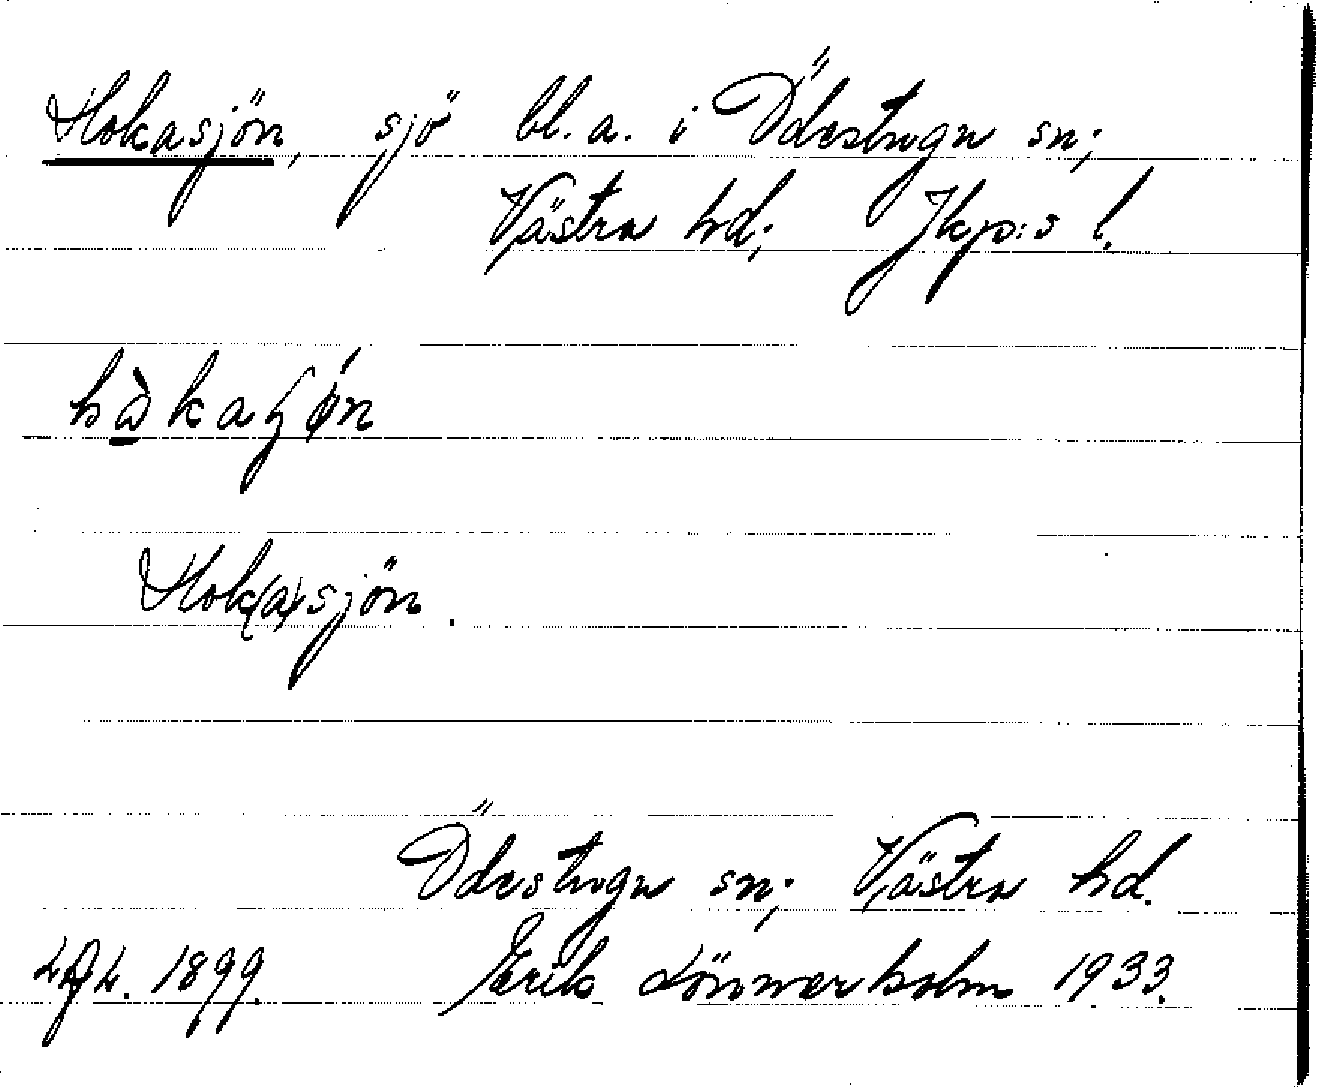 Hokasjön, sjö bl. a. i Ödestugu sn;
Västra hd; Jkp:s l.
Hok(a)sjön.
Ödestugu sn; Västra hd.
1899. Erik Lönnerholm 1933.